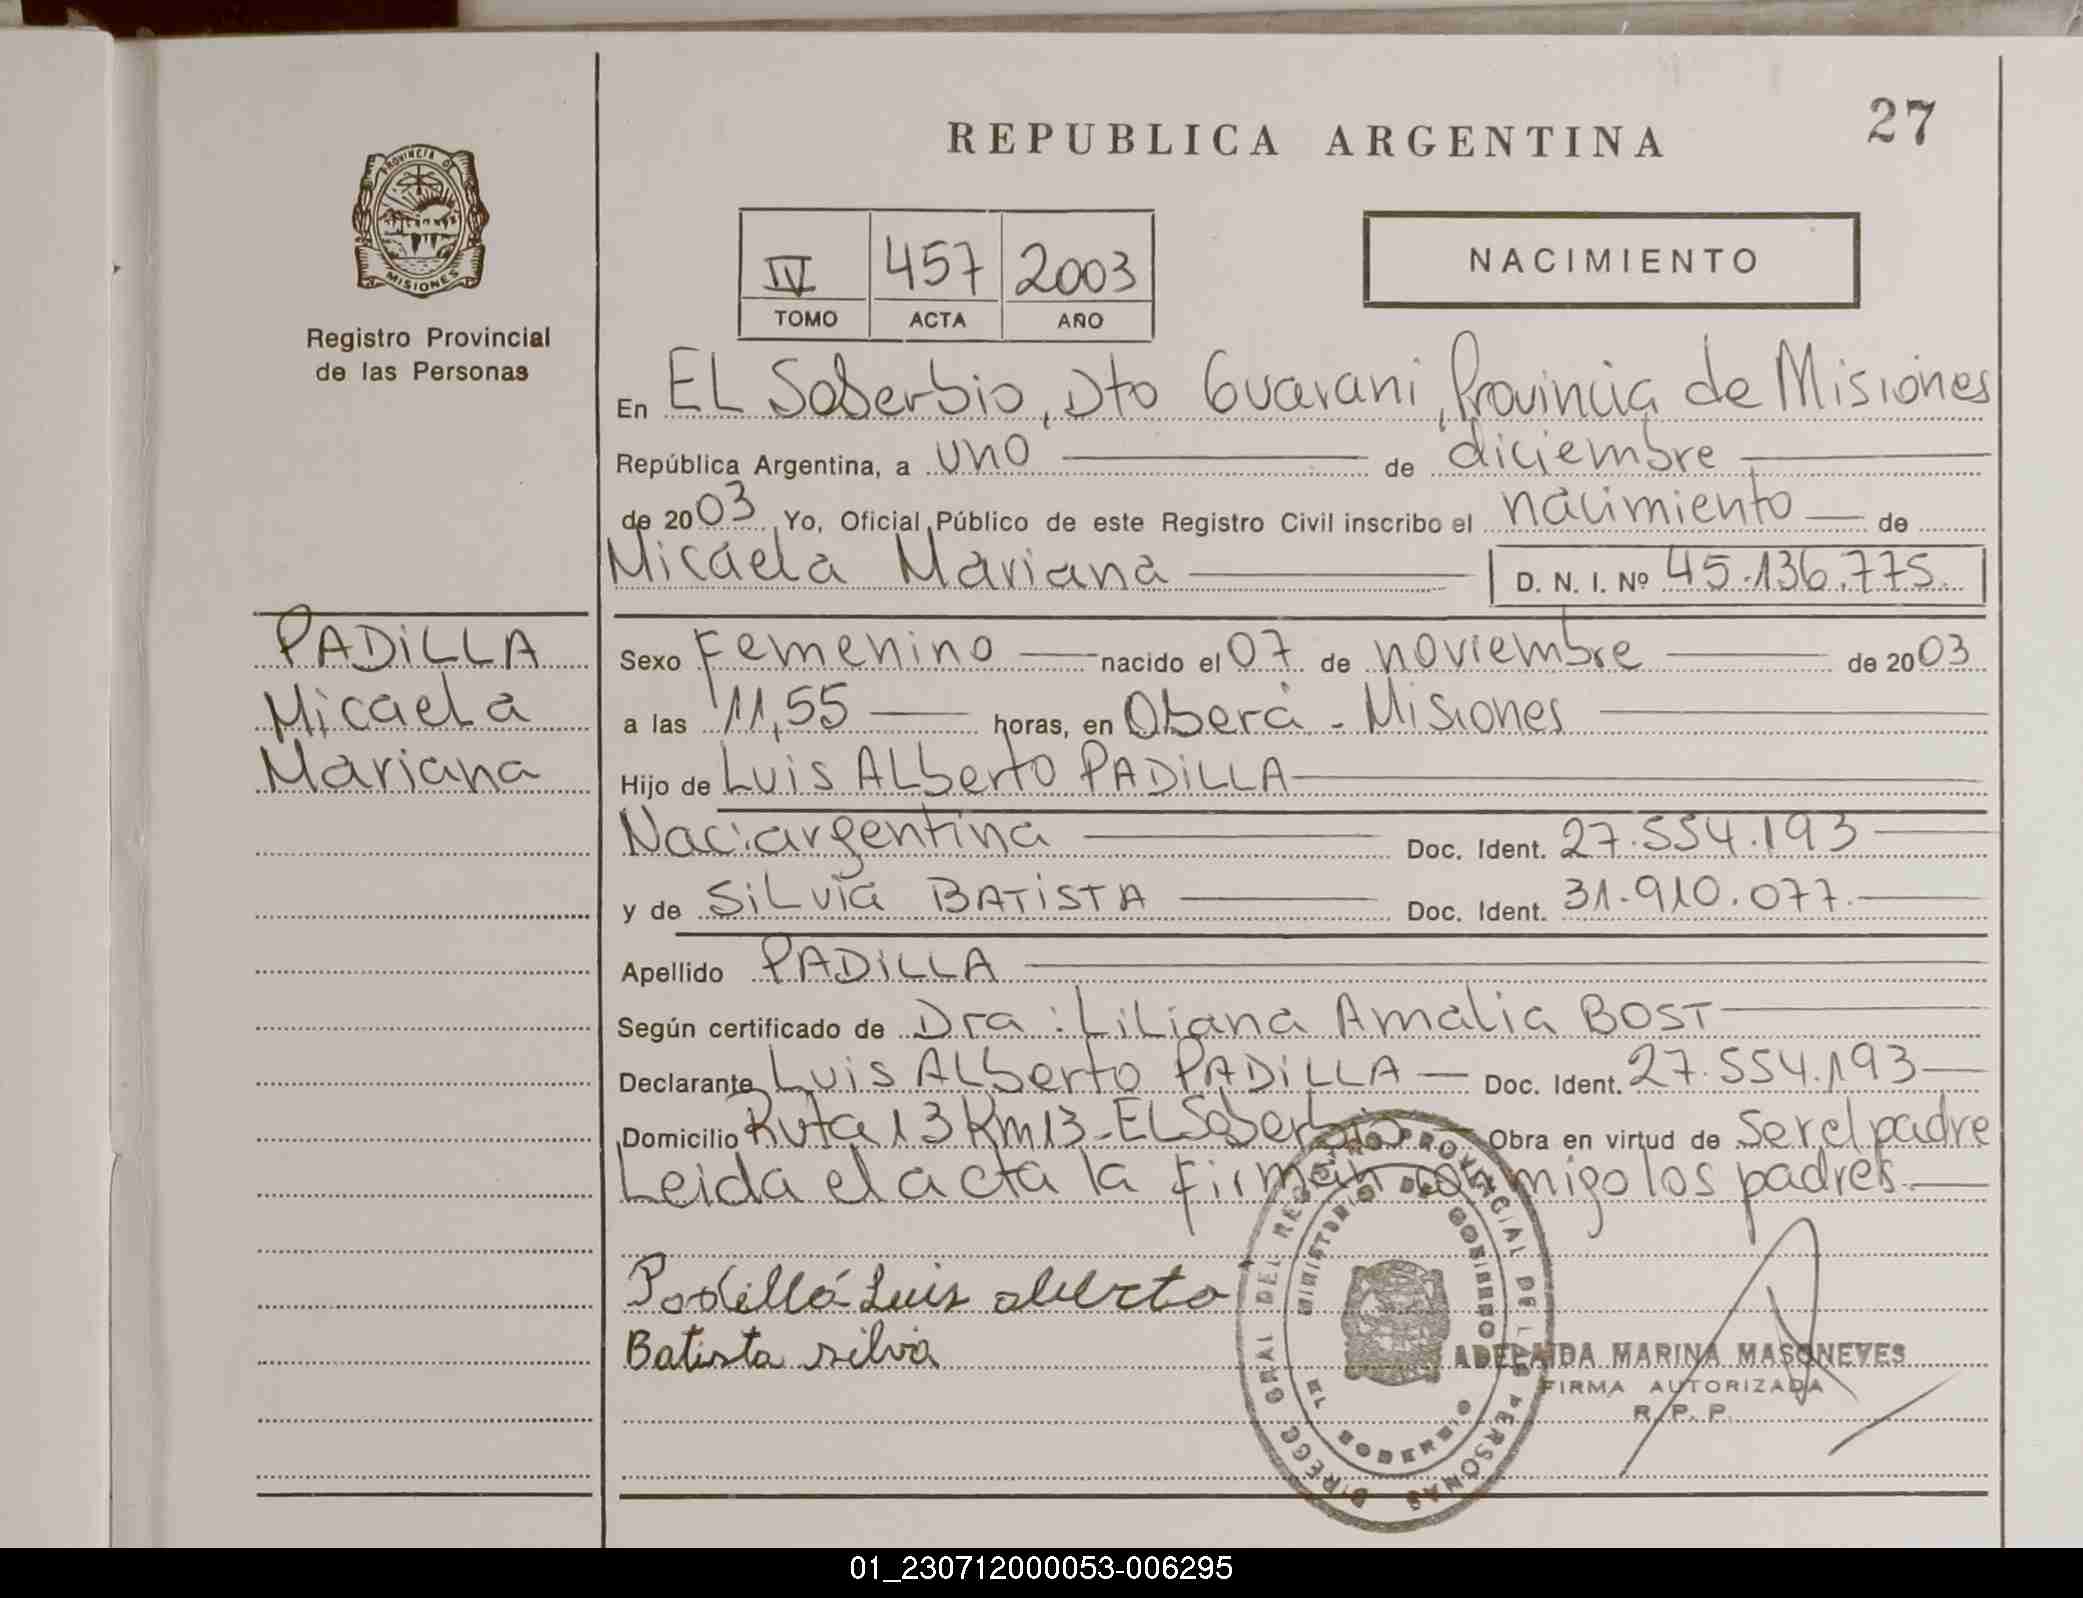 27
REPUBLICA ARGENTINA
PROVINCIA DE
MISIONES
Registro Provincial
de las Personas
IV 457 2003
TOMO ACTA AÑO
NACIMIENTO
En EL Soberbio, Dto Guarani, Provincia de Misiones
República Argentina, a uno de diciembre
de 2003 Yo, Oficial Público de este Registro Civil inscribo el nacimiento de
Micaela Mariana D. N. I. Nº 45.136.775.
PADiLLA
Micaela
Mariana
Sexo Femenino nacido el 07 de noviembre de 2003
a las 11,55 horas, en Oberá - Misiones
Hijo de Luis ALberto PADiLLA
Nac:argentina Doc. Ident. 27.554.193
y de SiLvia BATiSTA Doc. Ident. 31.910.077.
Apellido PADiLLA
Según certificado de Dra: LiLiana Amalia BOST
Declarante Luis ALberto PADiLLA Doc. Ident. 27.554.193
Domicilio Ruta 13 Km 13 - EL Soberbio Obra en virtud de ser el padre
Leida el acta la firman conmigo los padres
Padilla Luis alberto
Batista silvia
DIRECC GRAL DEL REGISTRO PROVINCIAL DE LAS PERSONAS
MINISTERIO DE GOBIERNO
EL SOBERBIO
ADELAIDA MARINA MASONEVES
FIRMA AUTORIZADA
R. P. P.
01_230712000053-006295